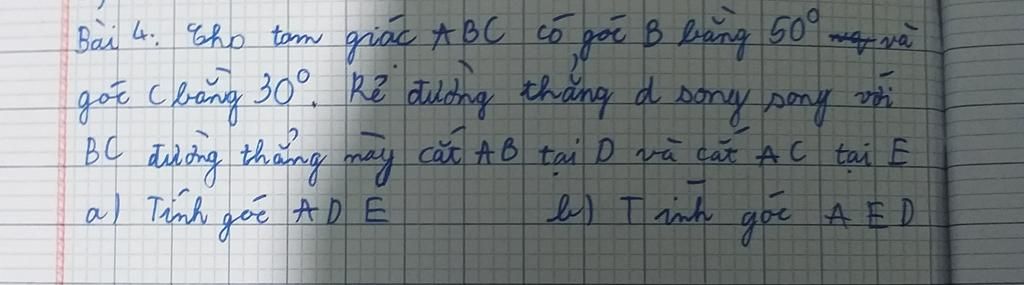 Bài 4: Cho tam giác ABC có góc B bằng 50° và
góc C bằng 30°. Kẻ đường thẳng d song song với
BC đường thẳng này cắt AB tại D và cắt AC tại E
a) Tính góc ADE b) Tính góc AED